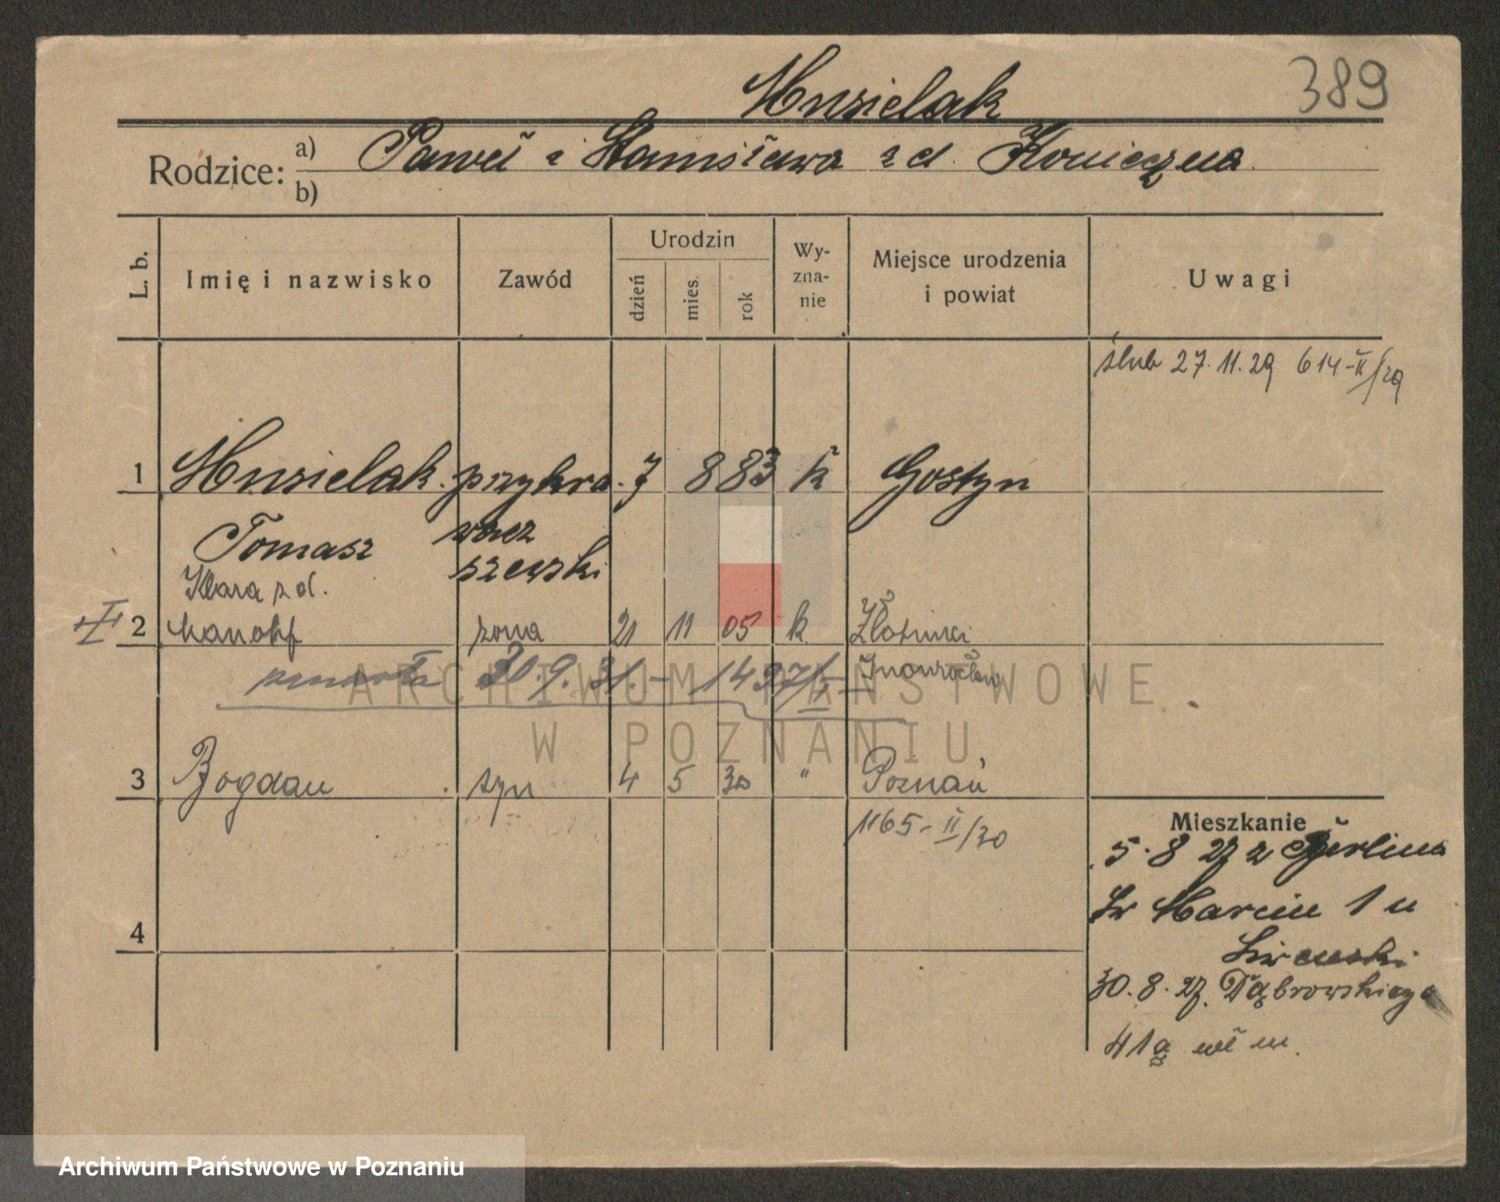 389
Musielak
Rodzice: a) Paweł i Stanisława z d. Konieczna
b)
L. b.
Imię i nazwisko
Zawód
Urodzin
dzień
mies.
rok
Wy-
zna-
nie
Miejsce urodzenia
i powiat
Uwagi
ślub 27.11.29 614-II/29
1 Musielak przykra- 7 8 83 k Gostyn
Tomasz wacz
szewski
Klara z d.
2 żona 21 11 05 k Złotniki
zmarła 30.9.31.- 1497/I Inowrocław
3 Bogdan syn 4 5 30 " Poznań
1165-II/30
4
Mieszkanie
5.8 27 z Berlina
Św Marcin 1 u
30.8.27. Dąbrowskiego
41a wł m.
ARCHIWUM PAŃSTWOWE
W POZNANIU
Archiwum Państwowe w Poznaniu